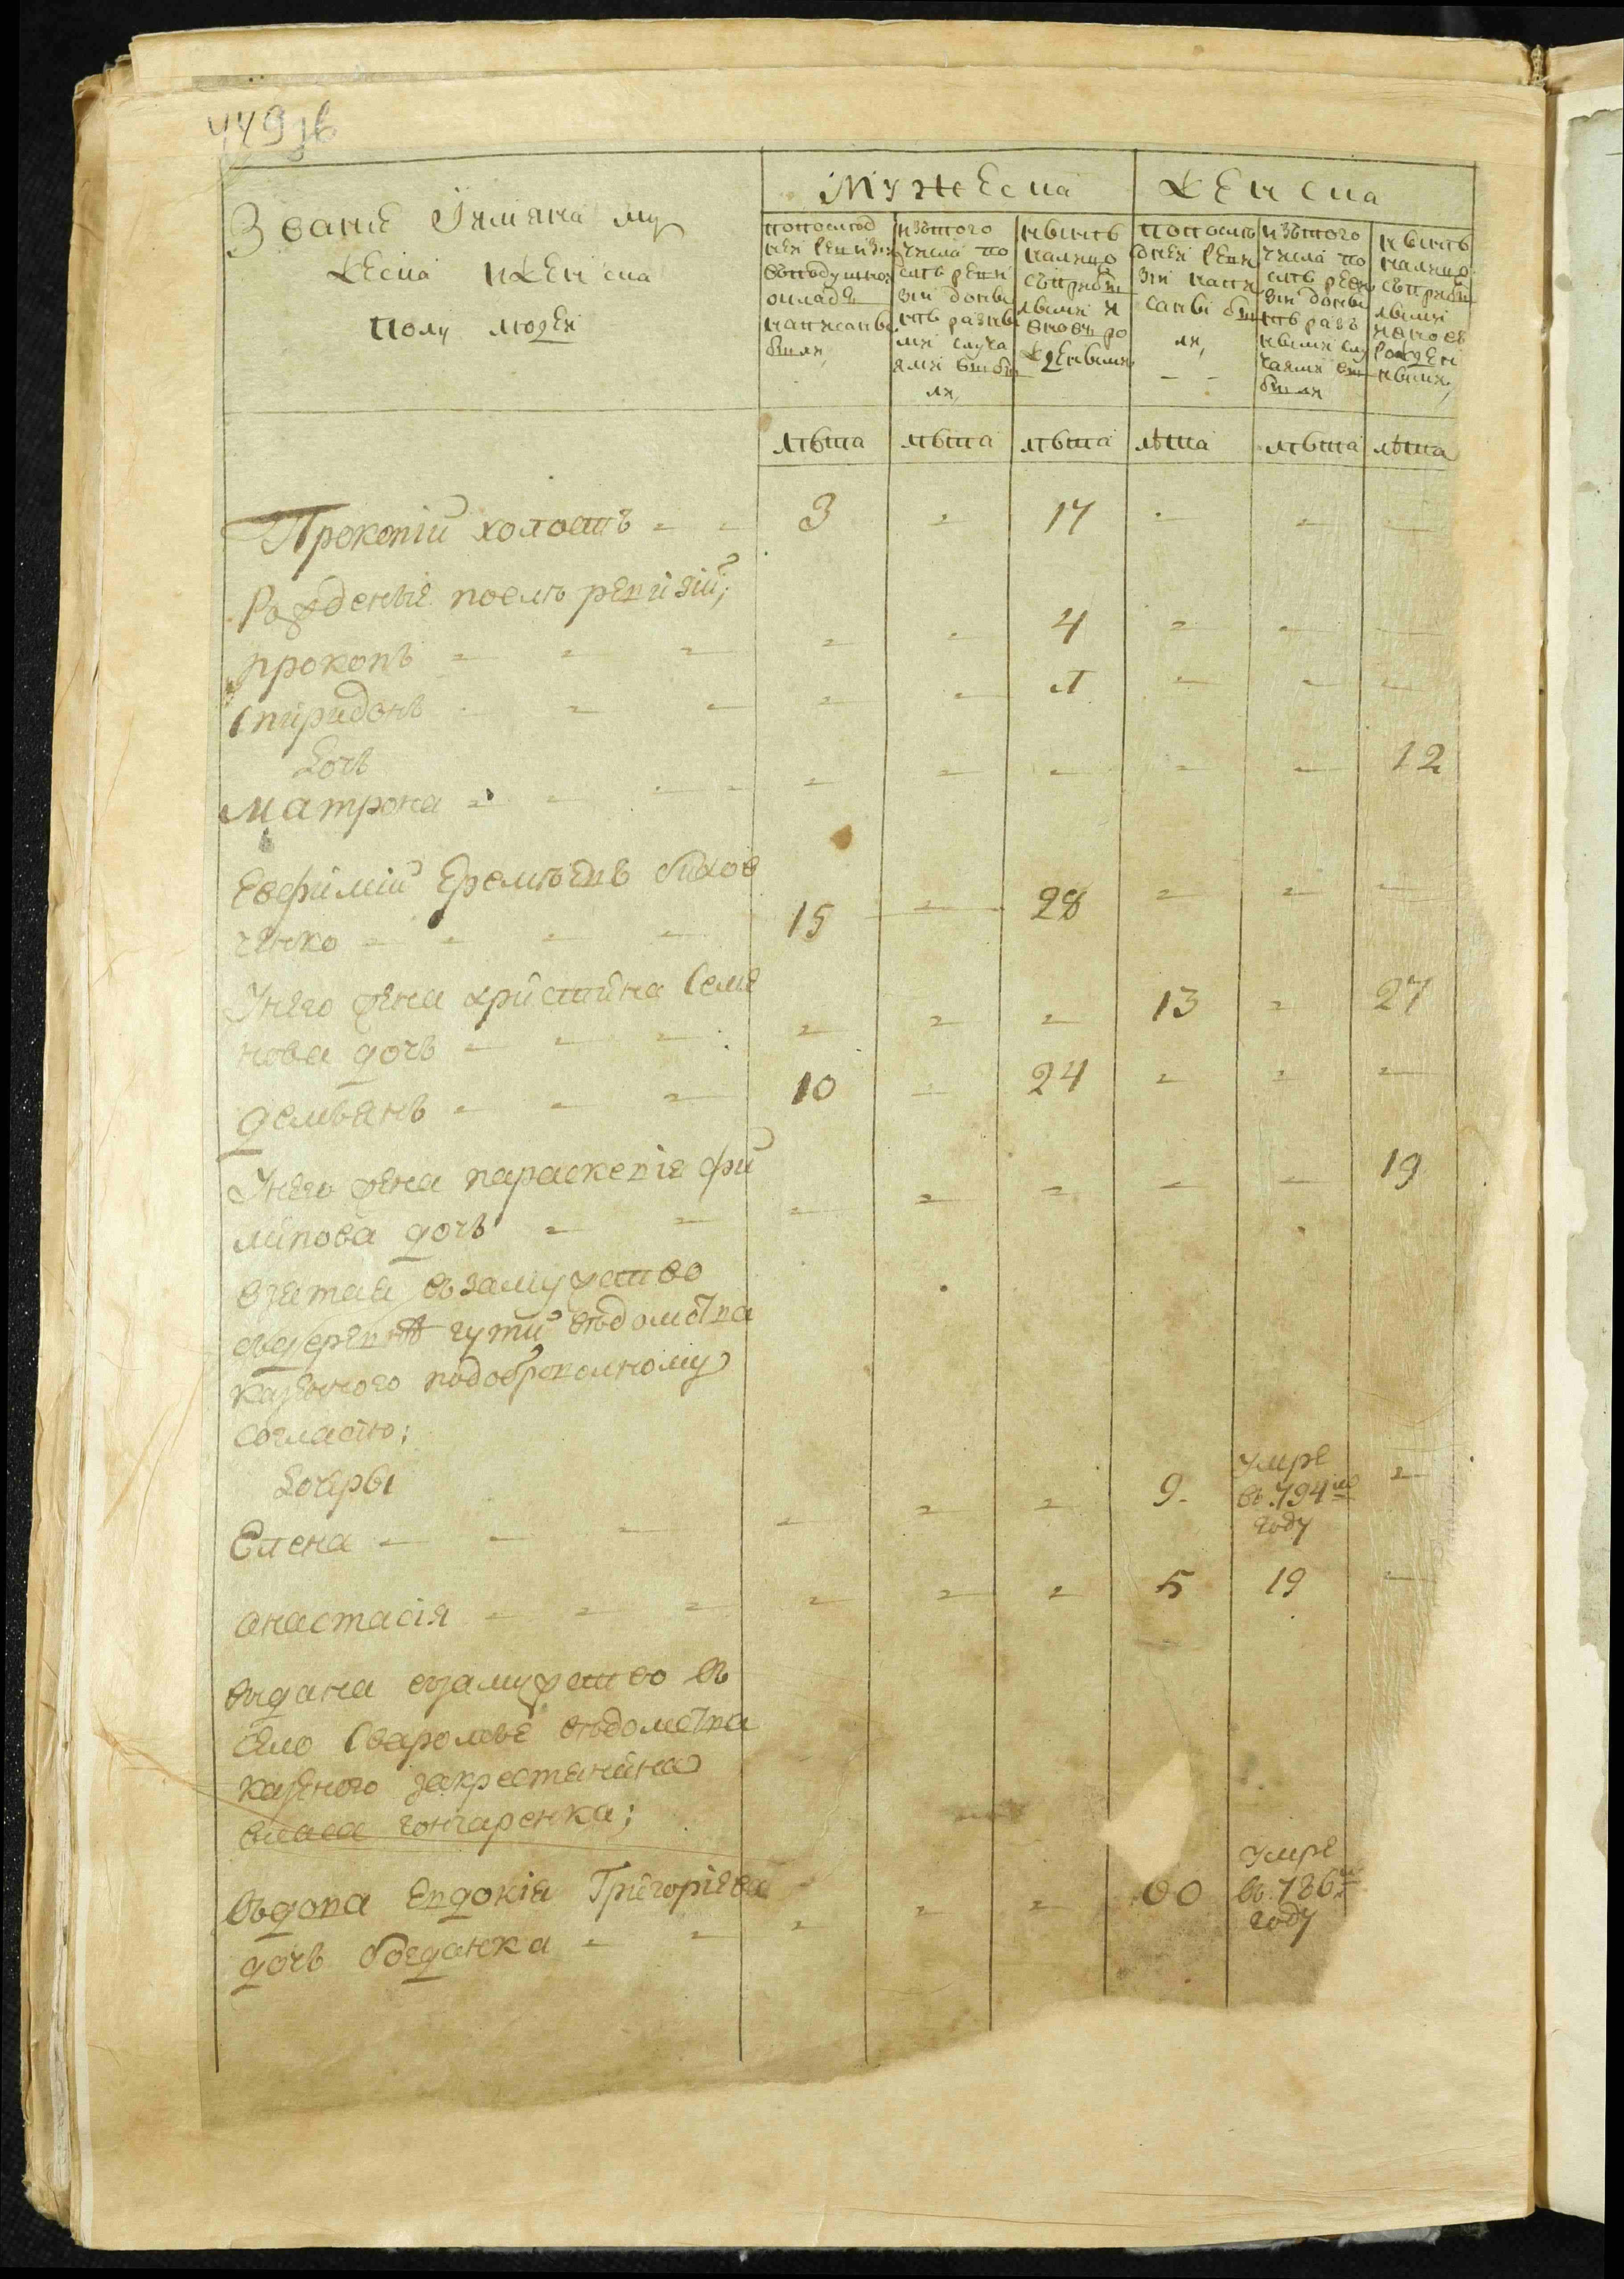 449 зв
Звание Iимяна му
жеска иженска
полу людеи
Мужеска
Женска
попослед
неи ревизи
вподушном
окладе
написаны
были,
изътого
числа по
слѣ реви
зіи довы
нѣ разны
ми случа
ями выбы
ли,
нынѣ
налицо
съприбы
лыми и
вновь ро
жденными
попослѣ
днеи реви
зіи напи
саны бы
ли,
изътого
числа по
слѣ реви
зіи довы
нѣ разъ
ными слу
чаями вы
были
нынѣ
налицо
съприбы
лыми
ивновь
рожден
ными,
лѣта лѣта лѣта лѣта лѣта лѣта
Прокопіи холостъ - - 3 - 17 - - -
Рожденые послѣ ревизіи;
прокопъ - - - - - 4 - - -
Спиридонъ - - - - - 1 - - -
Дочь
матрона - - - - - - - - 12
Евфиміи Еремѣевъ быхов
ченко - - - - 15 - 28 - - -
Унего жена христина Семе
нова дочь - - - - - - 13 - 27
демьянъ - - - 10 - 24 - - -
Унего жена параскевія фи
липова дочь - - - - - - - 19
взятая взамужство
издеревнѣ гути вѣдомства
казенного подоброволному
согласію;
Дочеры
Елена - - - - - - 9. умре въ.794мъ году -
анастасія - - - - - - 5 19 -
выдана взамужство въ
село Сваромье вѣдомства
казеного закрестянина
власа гончаренка;
Въдова Евдокія Григоріева
дочь богданка - - - - - 60 умре въ.786мъ году